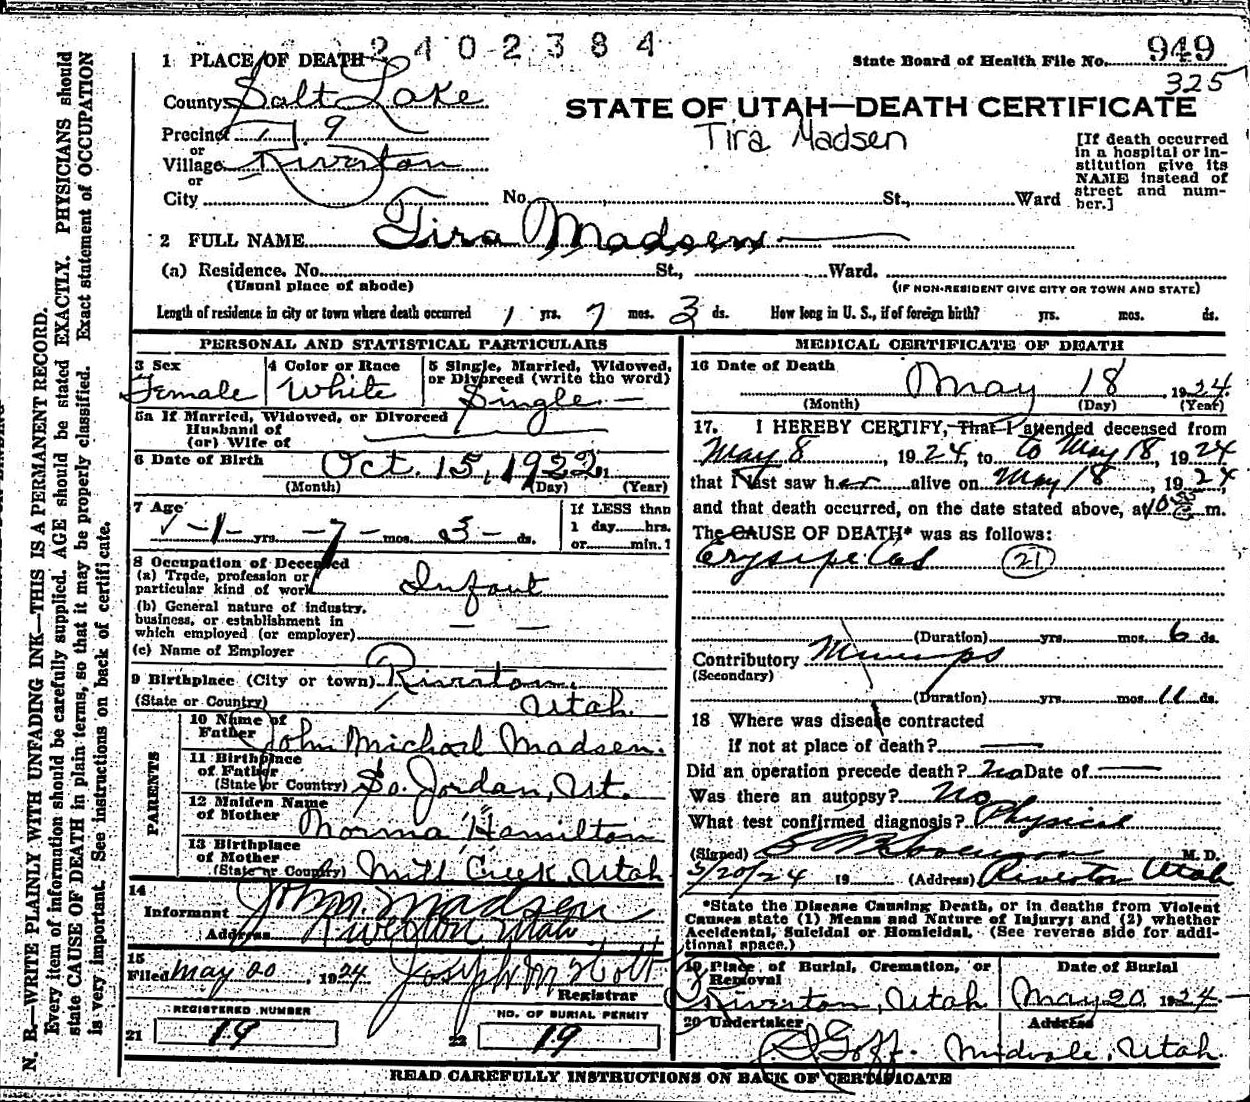 2402384
949
State Board of Health File No.
325
1 PLACE OF DEATH
County Salt Lake
STATE OF UTAH—DEATH CERTIFICATE
Tira Madsen
Precinct 9
or
Village Riverton
or
City No. St., Ward
[If death occurred
in a hospital or in-
stitution give its
NAME instead of
street and num-
ber.]
2 FULL NAME Tira Madsen
(a) Residence. No. St., Ward.
(Usual place of abode)
(IF NON-RESIDENT GIVE CITY OR TOWN AND STATE)
Length of residence in city or town where death occurred 1 yrs. 7 mos. 3 ds. How long in U. S., if of foreign birth? yrs. mos. ds.
PERSONAL AND STATISTICAL PARTICULARS
3 Sex
Female
4 Color or Race
White
5 Single, Married, Widowed,
or Divorced (write the word)
Single
5a If Married, Widowed, or Divorced
Husband of
(or) Wife of
6 Date of Birth Oct. 15, 1922
(Month) (Day) (Year)
7 Age
1 yrs. 7 mos. 3 ds.
If LESS than
1 day hrs.
or min.
8 Occupation of Deceased
(a) Trade, profession or
particular kind of work Infant
(b) General nature of industry,
business, or establishment in
which employed (or employer) — —
(c) Name of Employer
9 Birthplace (City or town) Riverton,
(State or Country) Utah.
PARENTS
10 Name of
Father John Michael Madsen.
11 Birthplace
of Father
(State or Country) So. Jordan, Ut.
12 Maiden Name
of Mother Norma "Hamilton
13 Birthplace
of Mother
(State or Country) Mill Creek, Utah
14
Informant John M. Madsen
Address Riverton Utah
15
Filed May 20, 1924 Joseph M Holt
Registrar
REGISTERED NUMBER
21 19
NO. OF BURIAL PERMIT
22 19
MEDICAL CERTIFICATE OF DEATH
16 Date of Death
May 18, 1924.
(Month) (Day) (Year)
17. I HEREBY CERTIFY, That I attended deceased from
May 8, 1924, to to May 18, 1924
that I last saw her alive on May 18, 1924,
and that death occurred, on the date stated above, at 10 m.
The CAUSE OF DEATH* was as follows:
Erysipelas 21
(Duration) yrs. mos. 6 ds.
Contributory Mumps
(Secondary)
(Duration) yrs. mos. 11 ds.
18 Where was disease contracted
If not at place of death? —
Did an operation precede death? No Date of —
Was there an autopsy? No
What test confirmed diagnosis? Physical
(Signed) M. D.
5/20/24 19 (Address) Riverton Utah
*State the Disease Causing Death, or in deaths from Violent
Causes state (1) Means and Nature of Injury; and (2) whether
Accidental, Suicidal or Homicidal. (See reverse side for addi-
tional space.)
19 Place of Burial, Cremation, or
Removal
Riverton, Utah
Date of Burial
May 20 1924
20 Undertaker Address
Goff. Midvale, Utah.
READ CAREFULLY INSTRUCTIONS ON BACK OF CERTIFICATE
N. B.—WRITE PLAINLY WITH UNFADING INK—THIS IS A PERMANENT RECORD.
Every item of information should be carefully supplied. AGE should be stated EXACTLY. PHYSICIANS should
state CAUSE OF DEATH in plain terms, so that it may be properly classified. Exact statement of OCCUPATION
is very important. See instructions on back of certificate.